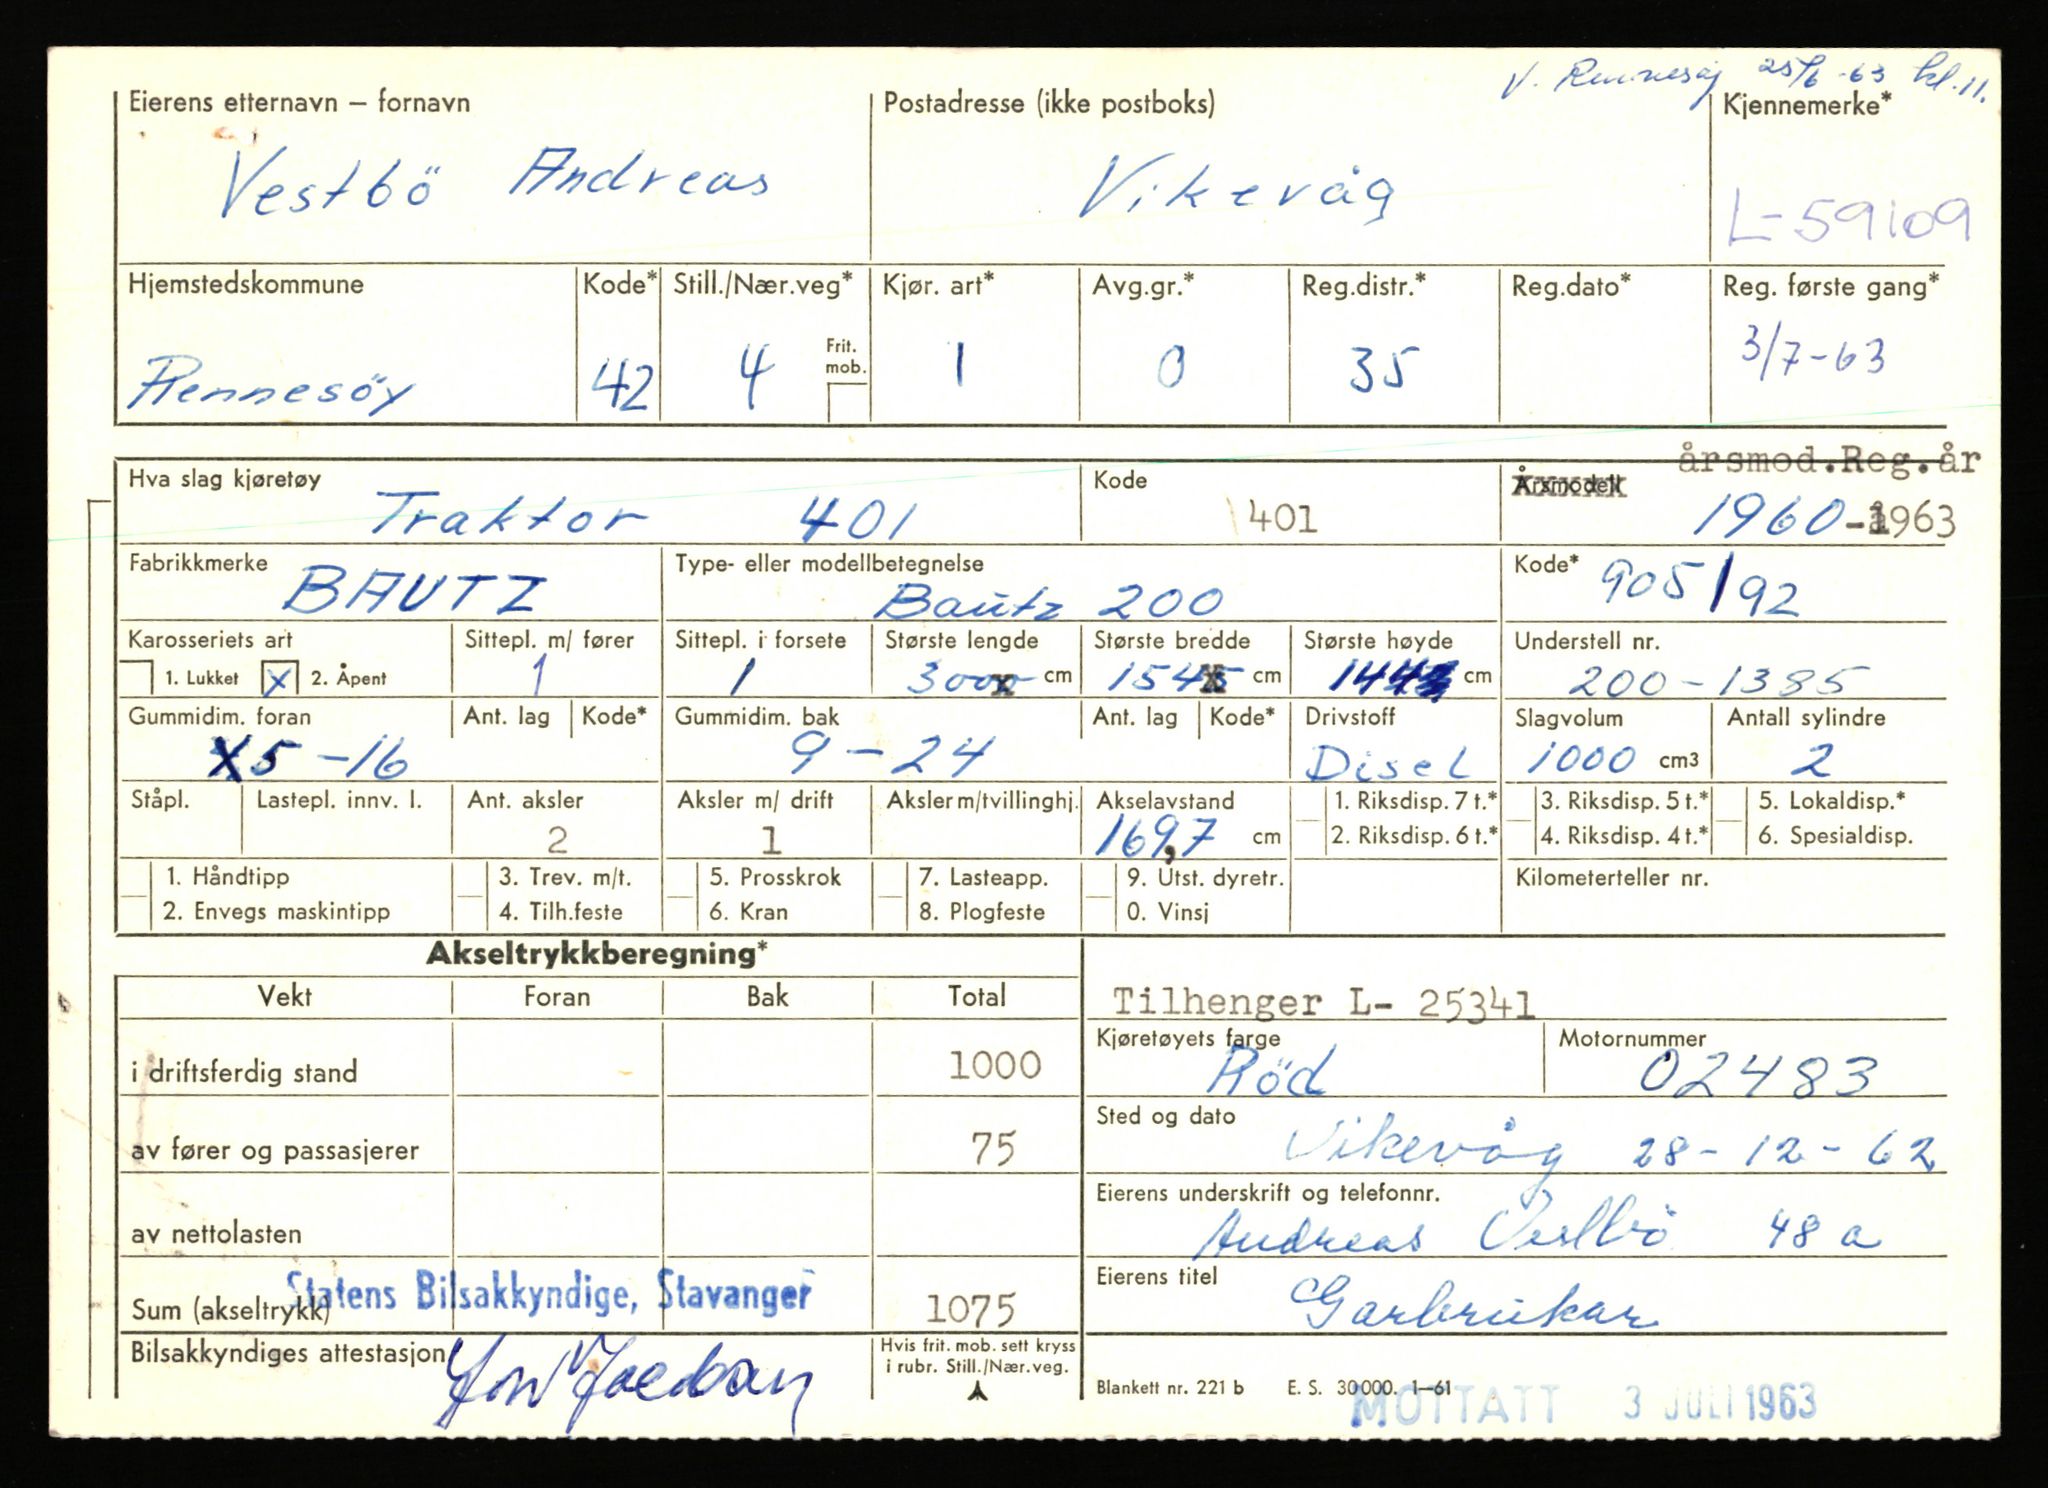 V. Rennesøy 25/6-63 kl. 11.
Eierens etternavn – fornavn Postadresse (ikke postboks) Kjennemerke*
Vestbö Andreas Vikevåg L-59109
Hjemstedskommune Kode* Still./Nær.veg* Kjør. art* Avg.gr.* Reg.distr.* Reg.dato* Reg. første gang*
Rennesöy 42 4 Frit. mob. 1 0 35 3/7-63
årsmod.Reg.år
Hva slag kjøretøy Kode Årsmodell
Traktor 401 401 1960-1963
Fabrikkmerke Type- eller modellbetegnelse Kode*
BAUTZ Bautz 200 905/92
Karosseriets art Sittepl. m/ fører Sittepl. i forsete Største lengde Største bredde Største høyde Understell nr.
1. Lukket X 2. Åpent 1 1 300 cm 154 cm 144 cm 200-1385
Gummidim. foran Ant. lag Kode* Gummidim. bak Ant. lag Kode* Drivstoff Slagvolum Antall sylindre
5-16 9-24 Disel 1000 cm3 2
Ståpl. Lastepl. innv. l. Ant. aksler Aksler m/ drift Aksler m/tvillinghj. Akselavstand 1. Riksdisp. 7 t.* 3. Riksdisp. 5 t.* 5. Lokaldisp.*
2 1 169,7 cm 2. Riksdisp. 6 t.* 4. Riksdisp. 4 t.* 6. Spesialdisp.
1. Håndtipp 3. Trev. m/t. 5. Prosskrok 7. Lasteapp. 9. Utst. dyretr. Kilometerteller nr.
2. Envegs maskintipp 4. Tilh.feste 6. Kran 8. Plogfeste 0. Vinsj
Akseltrykkberegning*
Vekt Foran Bak Total
Tilhenger L- 25341
i driftsferdig stand 1000
Kjøretøyets farge Motornummer
Röd 02483
av fører og passasjerer 75
Sted og dato
Vikevåg 28-12-62
av nettolasten
Eierens underskrift og telefonnr.
Andreas Vestbö 48 a
Statens Bilsakkyndige, Stavanger
Sum (akseltrykk) 1075
Eierens titel
Garbrukar
Bilsakkyndiges attestasjon
Hvis frit. mob. sett kryss
i rubr. Still./Nær.veg.
Blankett nr. 221 b E. S. 30000. 1–61
MOTTATT 3 JULI 1963